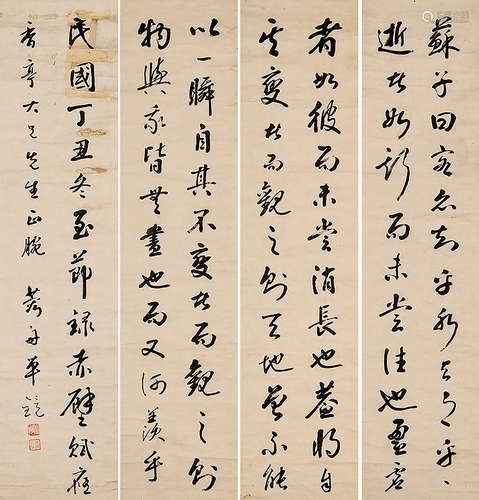 蘇子曰客亦知夫水与月乎
逝者如斯而未嘗往也盈虛
者如彼而未嘗消長也蓋將自
其變者而觀之則天地曾不能
以一瞬自其不變者而觀之則
物與我皆無盡也而又何羨乎
民國丁丑冬至節錄赤壁賦應
香亭大兄先生正腕